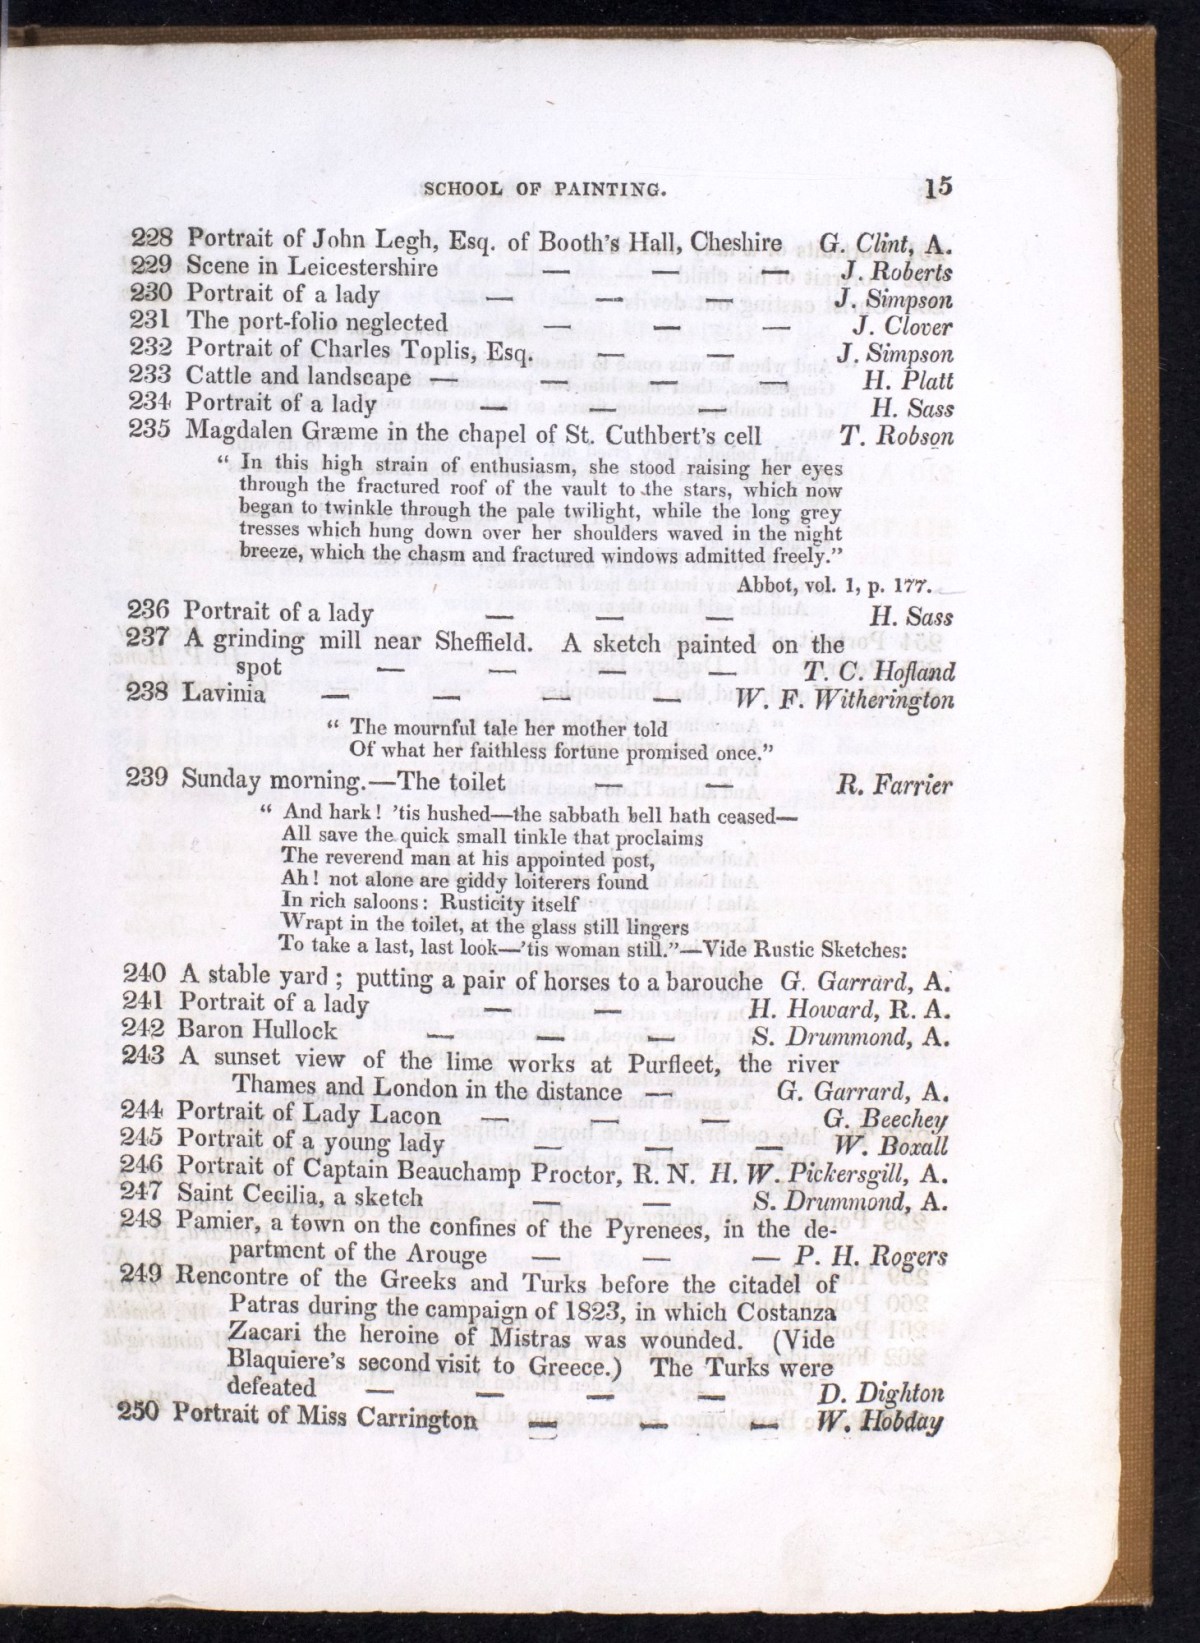 SCHOOL OF PAINTING. 15
228 Portrait of John Legh, Esq. of Booth's Hall, Cheshire G. Clint, A.
229 Scene in Leicestershire — — — J. Roberts
230 Portrait of a lady — — — J. Simpson
231 The port-folio neglected — — — J. Clover
232 Portrait of Charles Toplis, Esq. — — J. Simpson
233 Cattle and landscape — — — — H. Platt
234 Portrait of a lady — — — H. Sass
235 Magdalen Græme in the chapel of St. Cuthbert's cell T. Robson
“ In this high strain of enthusiasm, she stood raising her eyes
through the fractured roof of the vault to the stars, which now
began to twinkle through the pale twilight, while the long grey
tresses which hung down over her shoulders waved in the night
breeze, which the chasm and fractured windows admitted freely.”
Abbot, vol. 1, p. 177.
236 Portrait of a lady — — — H. Sass
237 A grinding mill near Sheffield. A sketch painted on the
spot — — — — T. C. Hofland
238 Lavinia — — — — W. F. Witherington
“ The mournful tale her mother told
Of what her faithless fortune promised once.”
239 Sunday morning.—The toilet — — R. Farrier
“ And hark! 'tis hushed—the sabbath bell hath ceased—
All save the quick small tinkle that proclaims
The reverend man at his appointed post,
Ah! not alone are giddy loiterers found
In rich saloons: Rusticity itself
Wrapt in the toilet, at the glass still lingers
To take a last, last look—'tis woman still.”—Vide Rustic Sketches:
240 A stable yard; putting a pair of horses to a barouche G. Garrard, A.
241 Portrait of a lady — — H. Howard, R. A.
242 Baron Hullock — — — S. Drummond, A.
243 A sunset view of the lime works at Purfleet, the river
Thames and London in the distance — G. Garrard, A.
244 Portrait of Lady Lacon — — — G. Beechey
245 Portrait of a young lady — — — W. Boxall
246 Portrait of Captain Beauchamp Proctor, R. N. H. W. Pickersgill, A.
247 Saint Cecilia, a sketch — — S. Drummond, A.
248 Pamier, a town on the confines of the Pyrenees, in the de-
partment of the Arouge — — — P. H. Rogers
249 Rencontre of the Greeks and Turks before the citadel of
Patras during the campaign of 1823, in which Costanza
Zacari the heroine of Mistras was wounded. (Vide
Blaquiere's second visit to Greece.) The Turks were
defeated — — — — D. Dighton
250 Portrait of Miss Carrington — — — W. Hobday